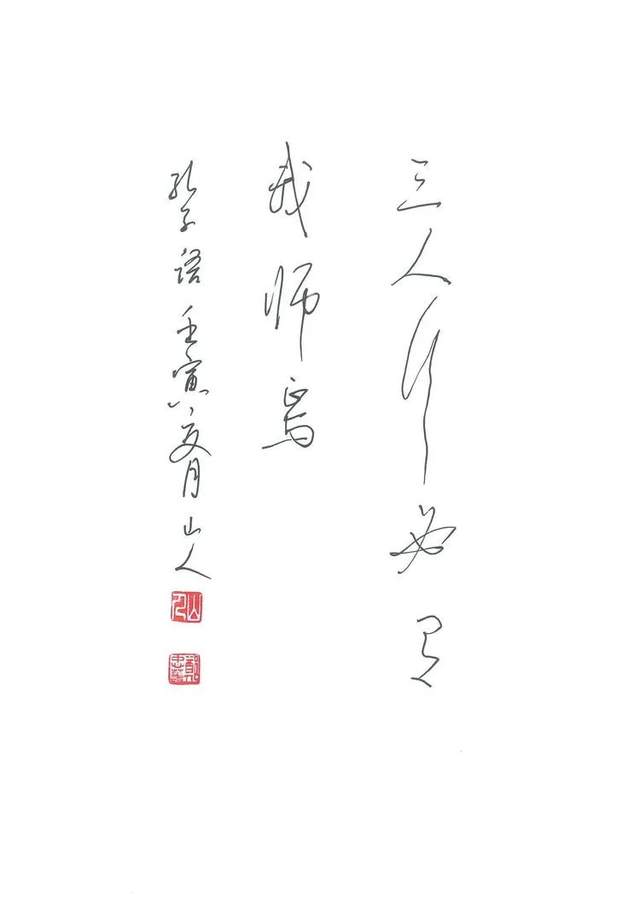 三人行必有
我师焉
孔子语 壬寅夏月 山人
山人